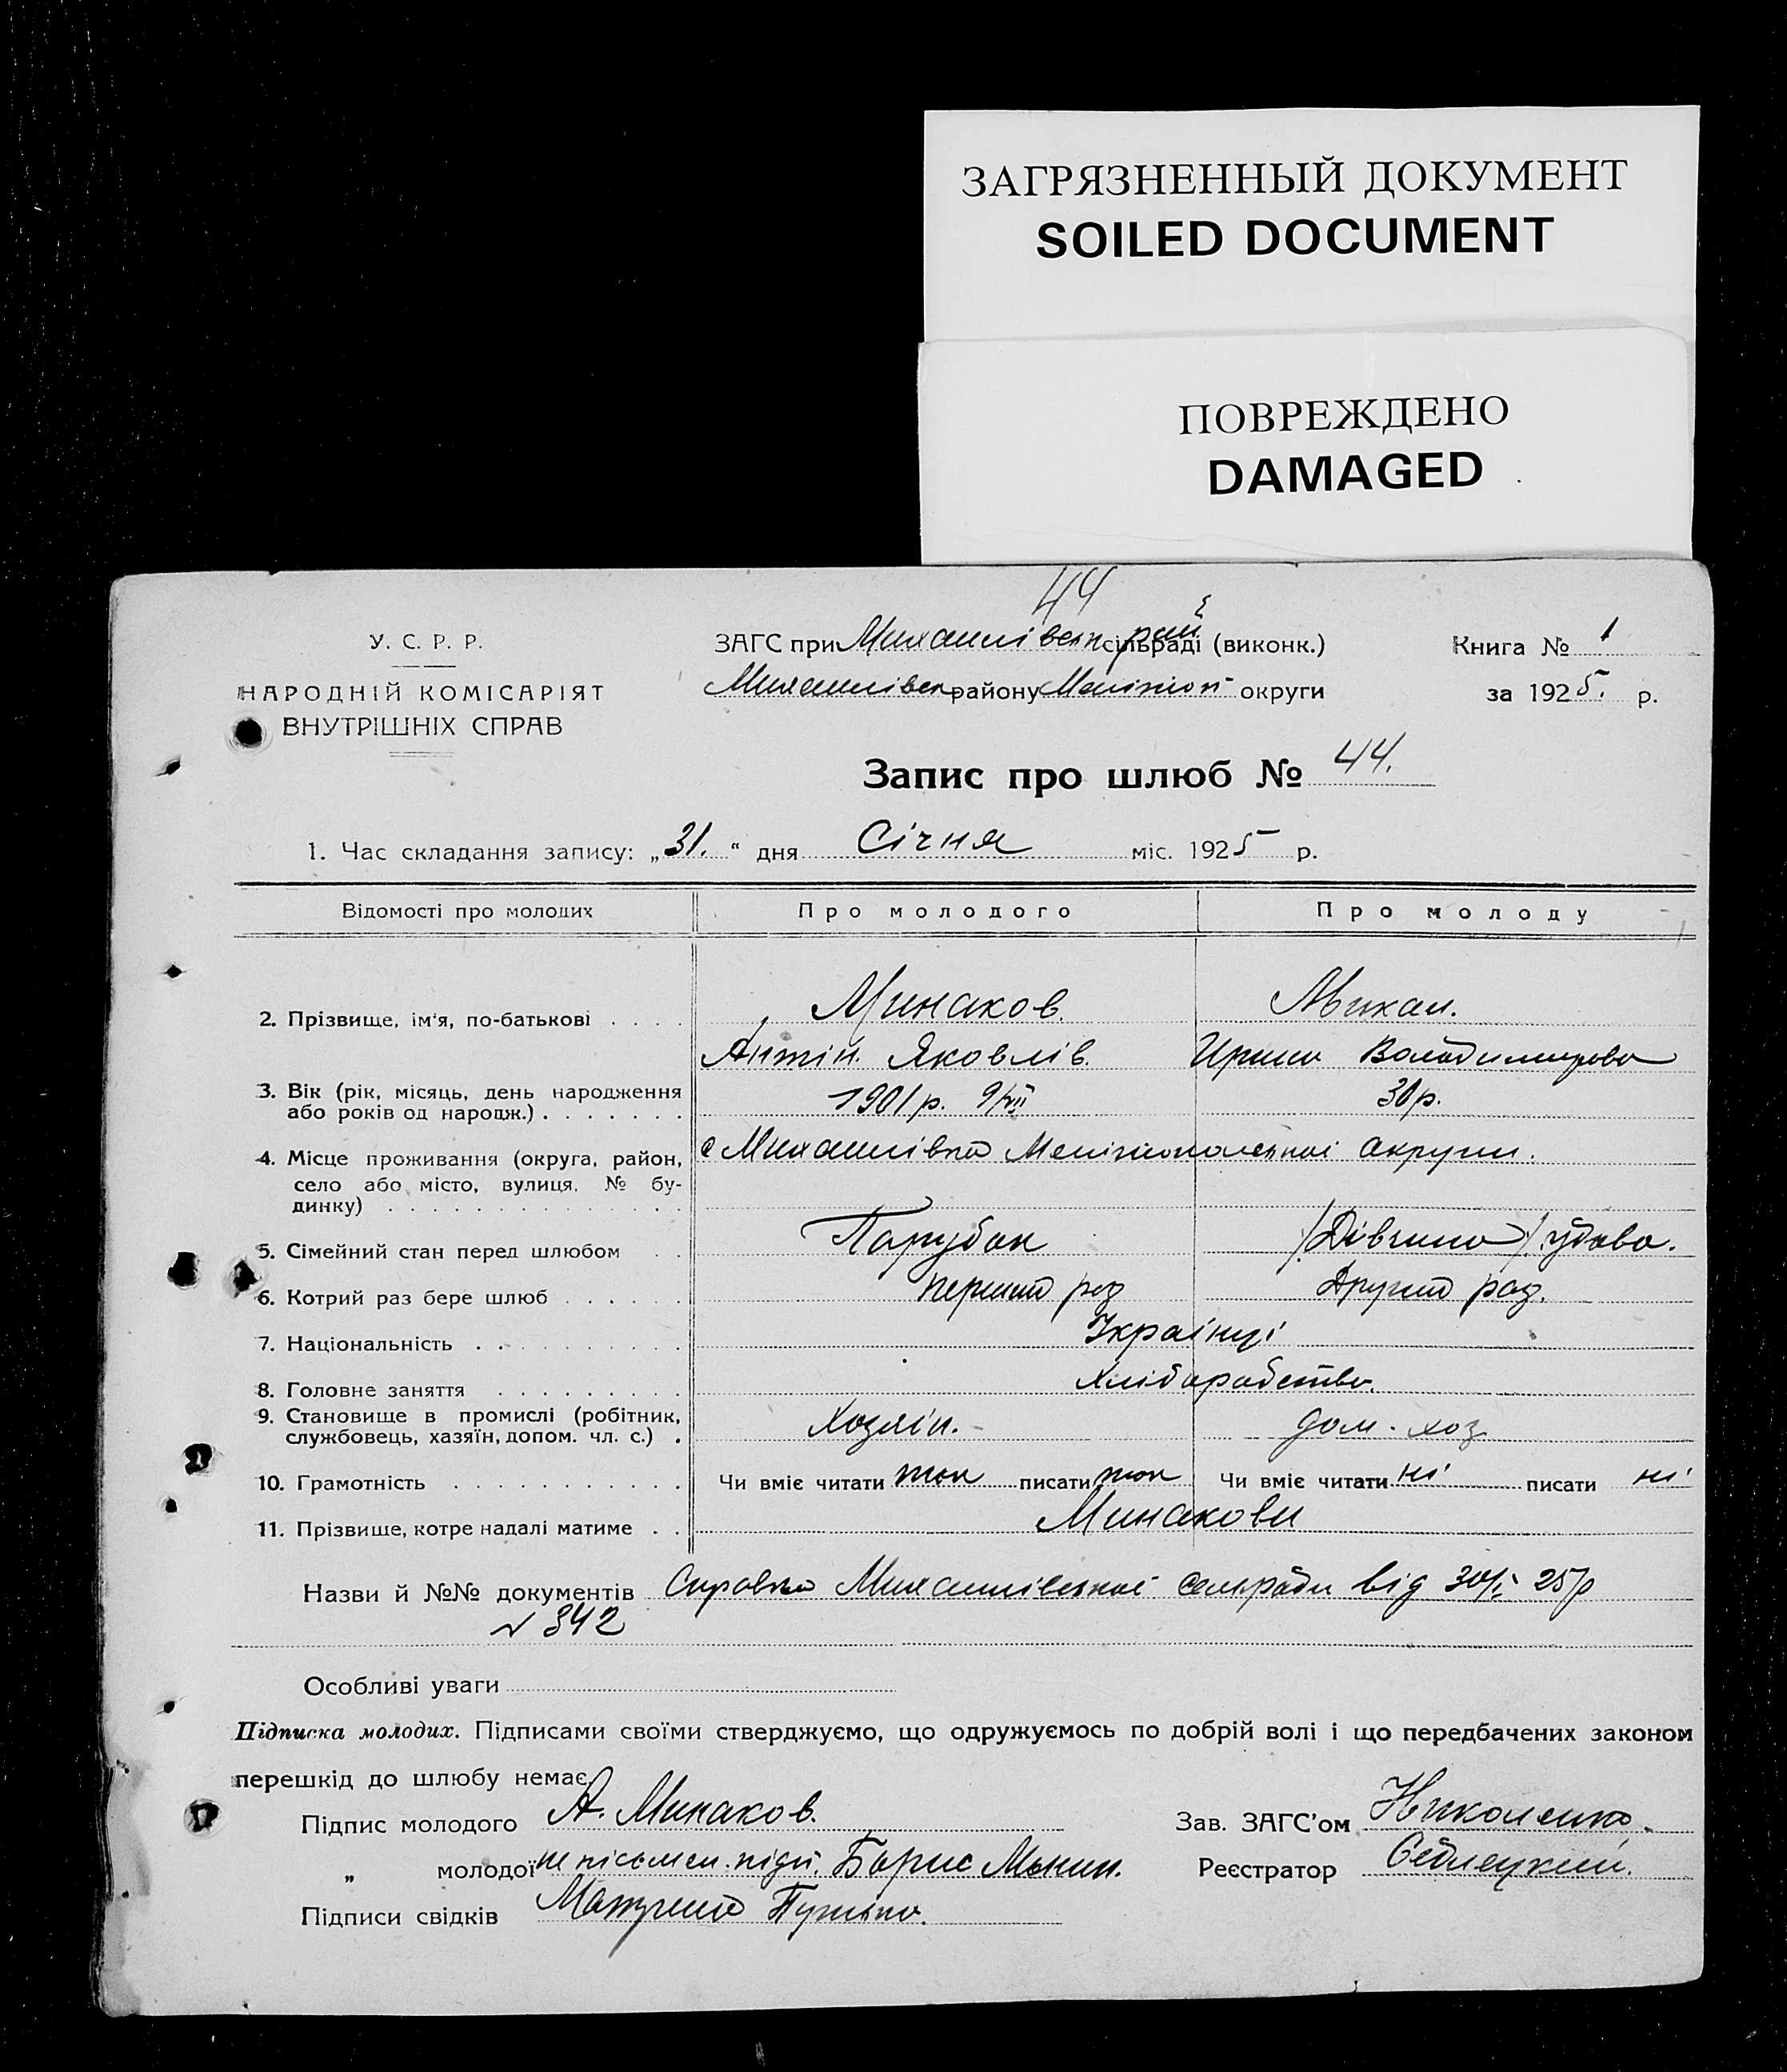 ЗАГРЯЗНЕННЫЙ ДОКУМЕНТ
SOILED DOCUMENT
ПОВРЕЖДЕНО
DAMAGED
44
У. С. Р. Р.
НАРОДНІЙ КОМІСАРІЯТ
ВНУТРІШНІХ СПРАВ
ЗАГС при Михайлівськ рай сільраді (виконк.)
Михайлівськ району Мелітоп округи
Книга № 1
за 1925. р.
Запис про шлюб № 44.
1. Час складання запису: „31." дня Січня міс. 1925 р.
Відомості про молодих Про молодого Про молоду
2. Прізвище, ім'я, по-батькові . . . . Минаков.
Антін. Яковлів. Ирина Володимирова
3. Вік (рік, місяць, день народження
або років од народж.) . . . . . . . 1901 р. 9/VII 30 р.
4. Місце проживання (округа, район,
село або місто, вулиця, № бу-
динку) . . . . . . . . . . . . . . с Михайлівка Мелітопольської Округи.
5. Сімейний стан перед шлюбом . . Парубок /Дівчина/ удова.
6. Котрий раз бере шлюб . . . . . . перший раз Другий раз.
7. Національність . . . . . . . . . . Українці
8. Головне заняття . . . . . . . . . Хліборобство.
9. Становище в промислі (робітник,
службовець, хазяїн, допом. чл. с.) . Хозяїн. дом. хоз
10. Грамотність . . . . . . . . . . . Чи вміє читати так писати так Чи вміє читати ні писати ні
11. Прізвище, котре надалі матиме . . Минакови
Назви й №№ документів Справка Михайлівської сельради від 30/I 25 р
№ 342
Особливі уваги
Підписка молодих. Підписами своїми стверджуємо, що одружуємось по добрій волі і що передбачених законом
перешкід до шлюбу немає
Підпис молодого А. Минаков.
„ молодої не письмен. підп. Борис
Підписи свідків
Зав. ЗАГС'ом Николенко.
Реєстратор Седлецкий.